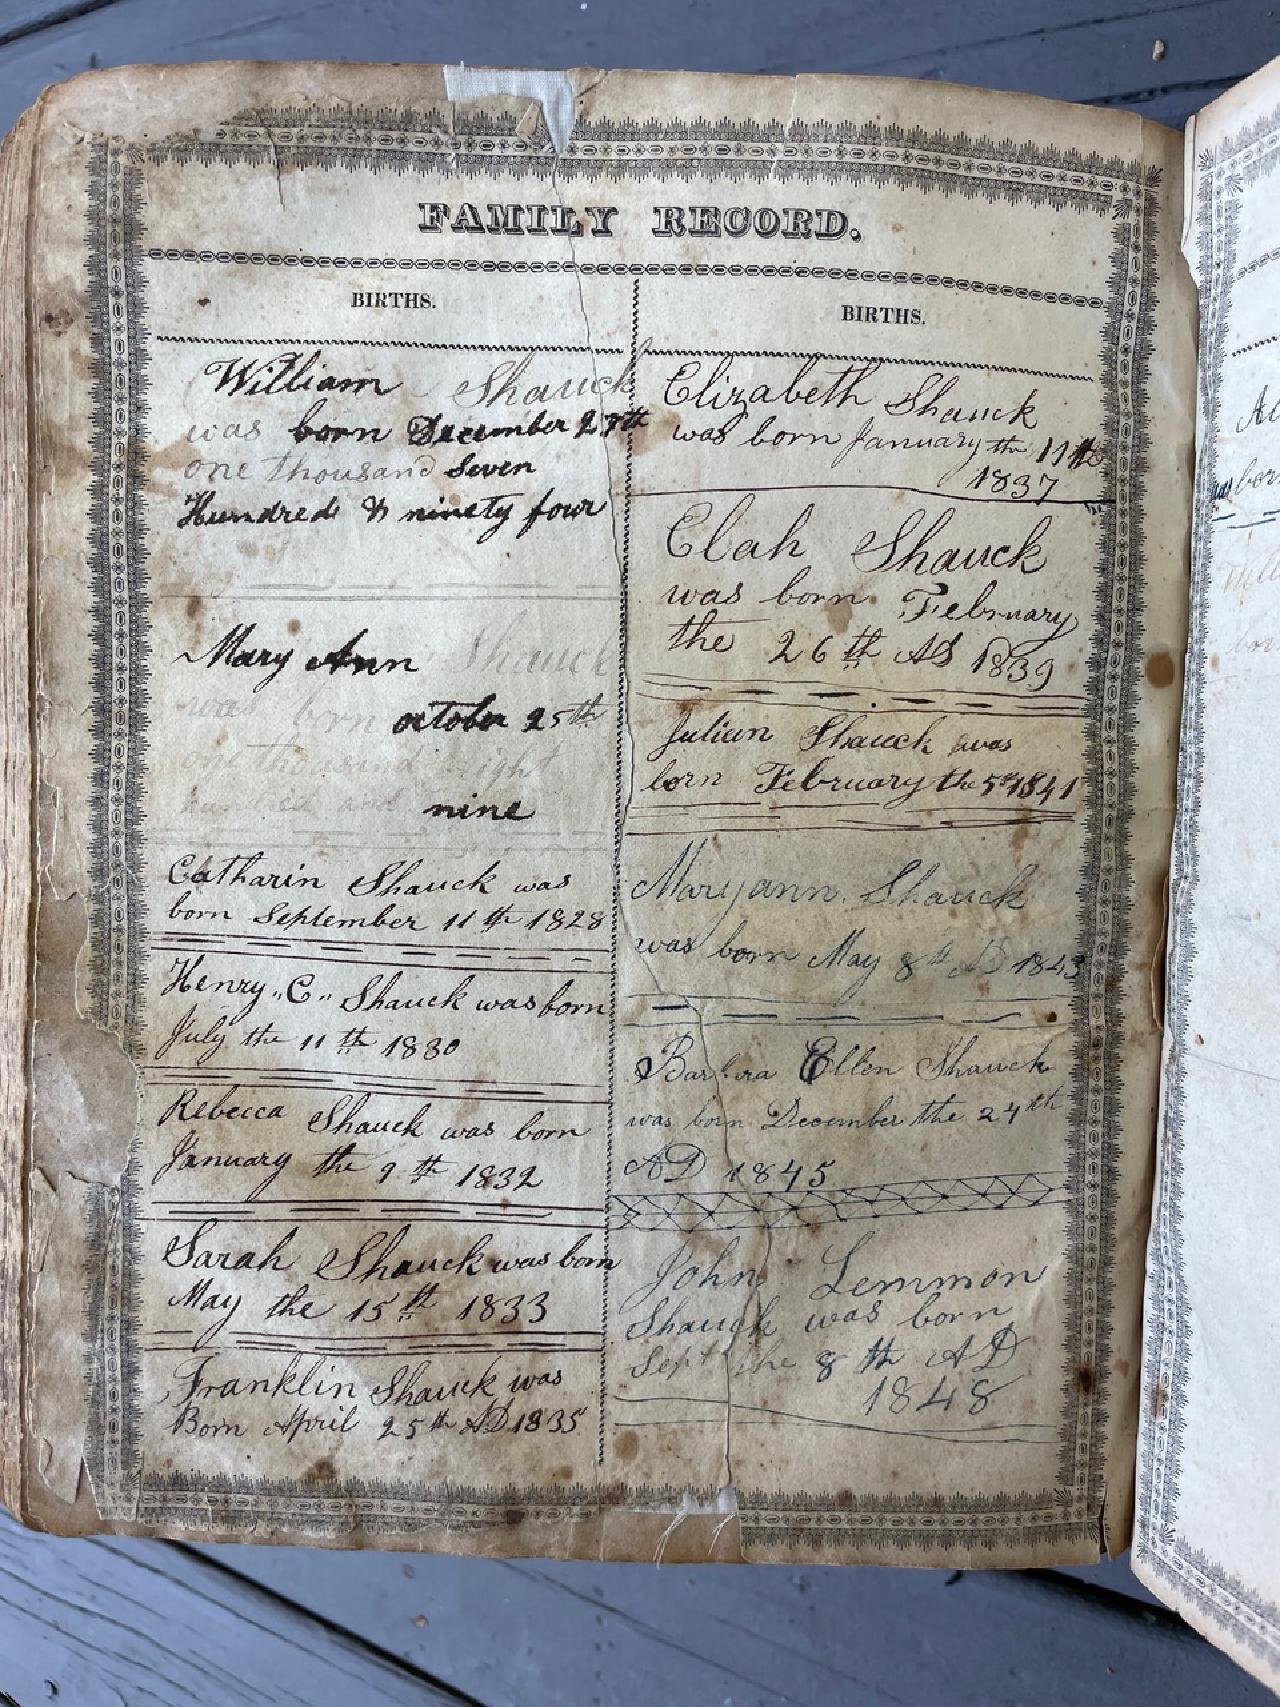 FAMILY RECORD.
BIRTHS.
William Shauck
was born December 27th
one thousand Seven
Hundred & ninety four
Mary Ann Shauck
was born october 25th
one thousand eight
hundred and nine
Catharin Shauck was
born September 11th 1828
Henry "C" Shauck was born
July the 11th 1830
Rebecca Shauck was born
January the 9th 1832
Sarah Shauck was born
May the 15th 1833
Franklin Shauck was
Born April 25th AD 1835
BIRTHS.
Elizabeth Shauck
was born January the 11th
1837
Elah Shauck
was born February
the 26th AD 1839
Julian Shauck was
born February the 5th 1841
Maryann Shauck
was born May 8th AD 1843
Barbra Ellen Shauck
was born December the 24th
AD 1845
John Lemmon
Shauck was born
Sept the 8th AD
1848